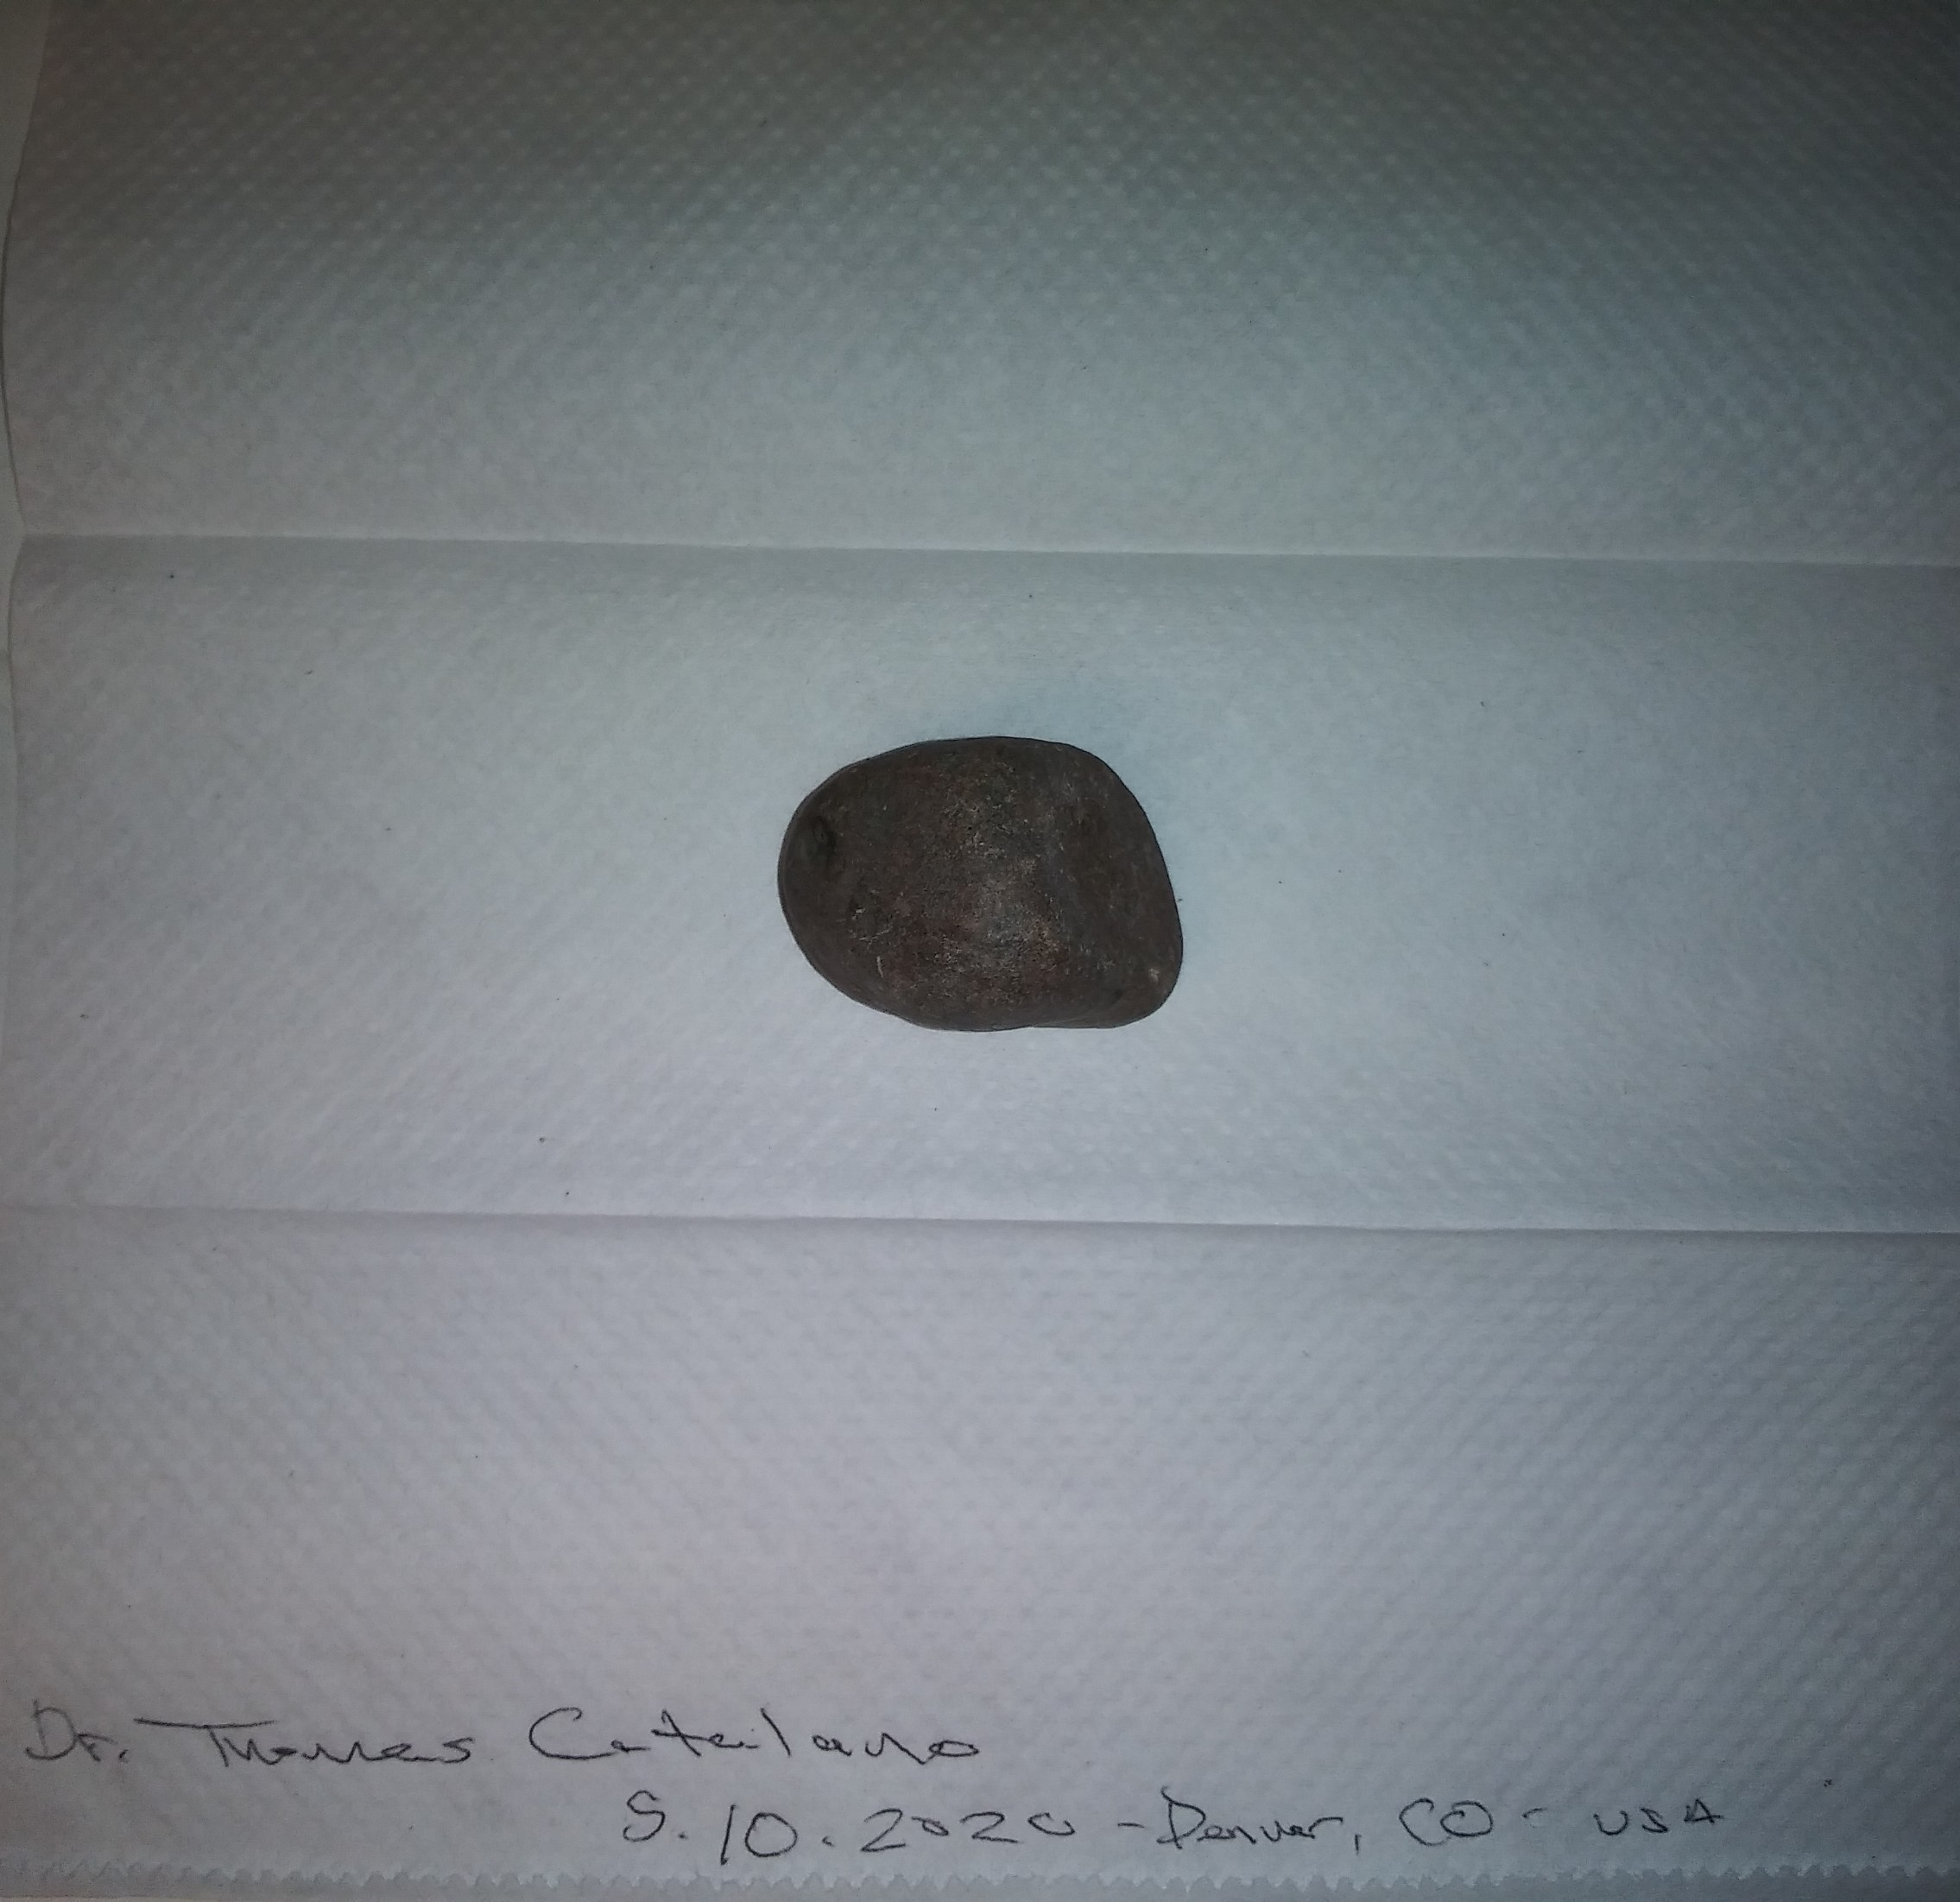 Dr. Thomas Catalano
5.10.2020 - Denver, CO - USA